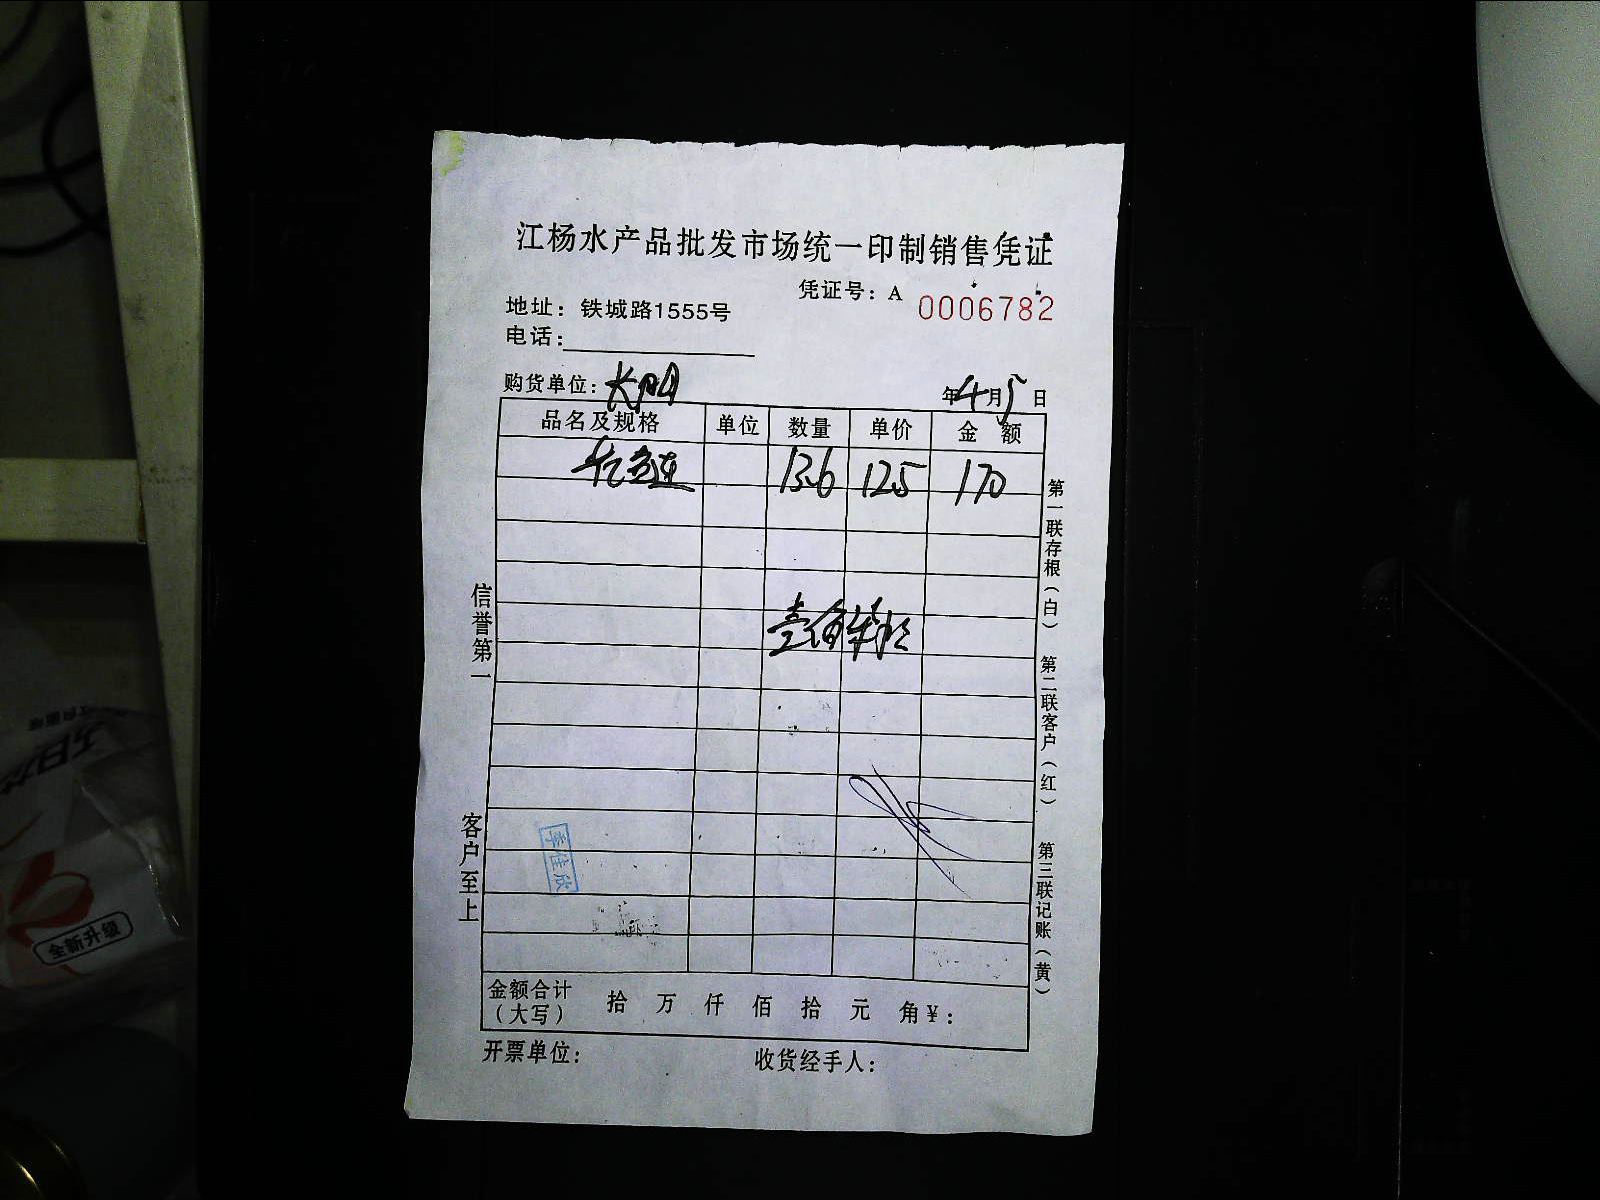 江杨水产品批发市场统一印制销售凭证
凭证号：A 0006782
地址：铁城路1555号
电话：
购货单位：长阳 年4月5日
品名及规格 单位 数量 单价 金额
13.6 125 170
壹佰柒拾
信誉第一
客户至上
第一联存根（白）
第二联客户（红）
第三联记账（黄）
李佳欣
金额合计（大写） 拾 万 仟 佰 拾 元 角 ¥：
开票单位：
收货经手人：
全新升级